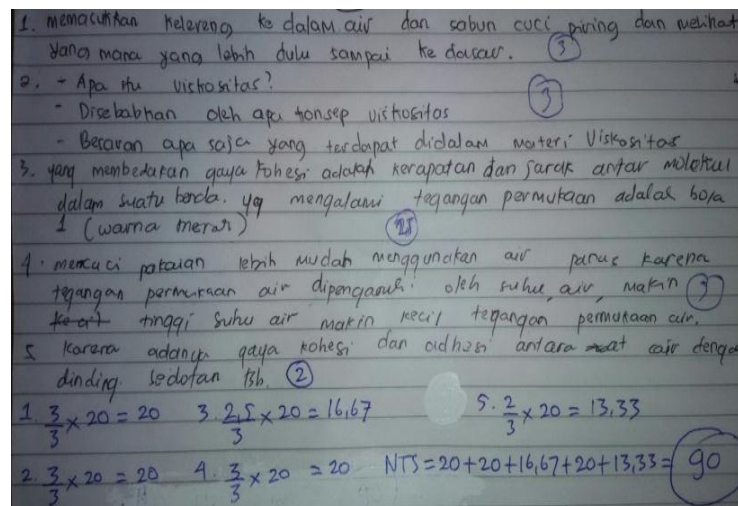 1. memasukkan kelereng ke dalam air dan sabun cuci piring dan melihat
yang mana yang lebih dulu sampai ke dasar. 3
2. - Apa itu viskositas?
- Disebabkan oleh apa konsep viskositas 3
- Besaran apa saja yang terdapat didalam materi Viskositas
3. yang membedakan gaya kohesi adalah kerapatan dan jarak antar molekul
dalam suatu benda. yg mengalami tegangan permukaan adalah bola
1 (warna merah) 2,5
4. mencuci pakaian lebih mudah menggunakan air panas karena
tegangan permukaan air dipengaruhi oleh suhu air, makin 3
tinggi suhu air makin kecil tegangan permukaan air.
5. Karena adanya gaya kohesi dan adhesi antara zat cair denga
dinding sedotan tsb. 2
1. 3/3 x 20 = 20 3. 2,5/3 x 20 = 16,67 5. 2/3 x 20 = 13,33
2. 3/3 x 20 = 20 4. 3/3 x 20 = 20 NTS = 20+20+16,67+20+13,33 = 90